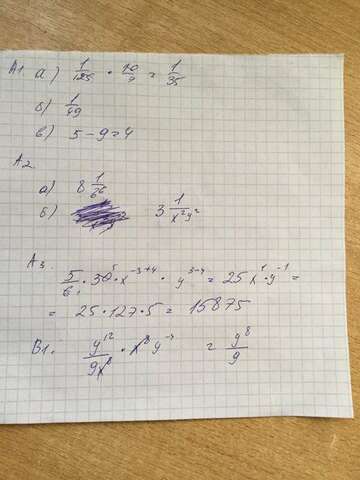 А1 а) 1/125 · 70/2 = 1/35
б) 1/49
в) 5 - 9 = 4
А2
а) 8 1/64
б) 3 1/x²y²
А3
5/6₁ · 30⁵ · x⁻³⁺⁴ · y³⁻⁴ = 25 x¹ · y⁻¹ =
= 25 · 127 · 5 = 15875
В1. y¹²/9x⁸ · x⁸ y⁻⁷ = y⁸/9